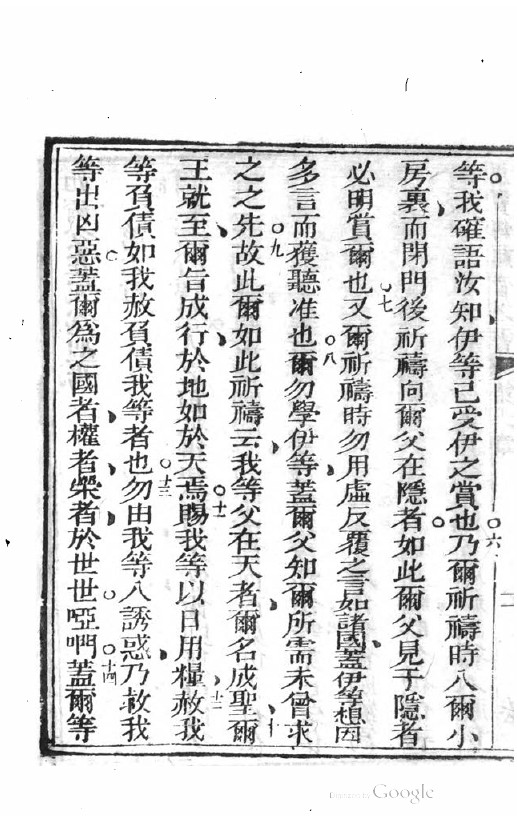 等我確語汝知伊等已受伊之賞也六乃爾祈禱時入爾小
房裏而閉門後祈禱向爾父在隱者如此爾父見于隱者
必明賞爾也七又爾祈禱時勿用虛反覆之言如諸國蓋伊等想因
多言而獲聽准也八爾勿學伊等蓋爾父知爾所需未曾求
之之先故九此爾如此祈禱云我等父在天者爾名成聖十爾
王就至爾旨成行於地如於天焉十一賜我等以日用糧十二赦我
等負債如我赦負債我等者也十三勿由我等入誘惑乃救我
等出凶惡蓋爾為之國者權者榮者於世世啞們十四蓋爾等
Digitized by Google